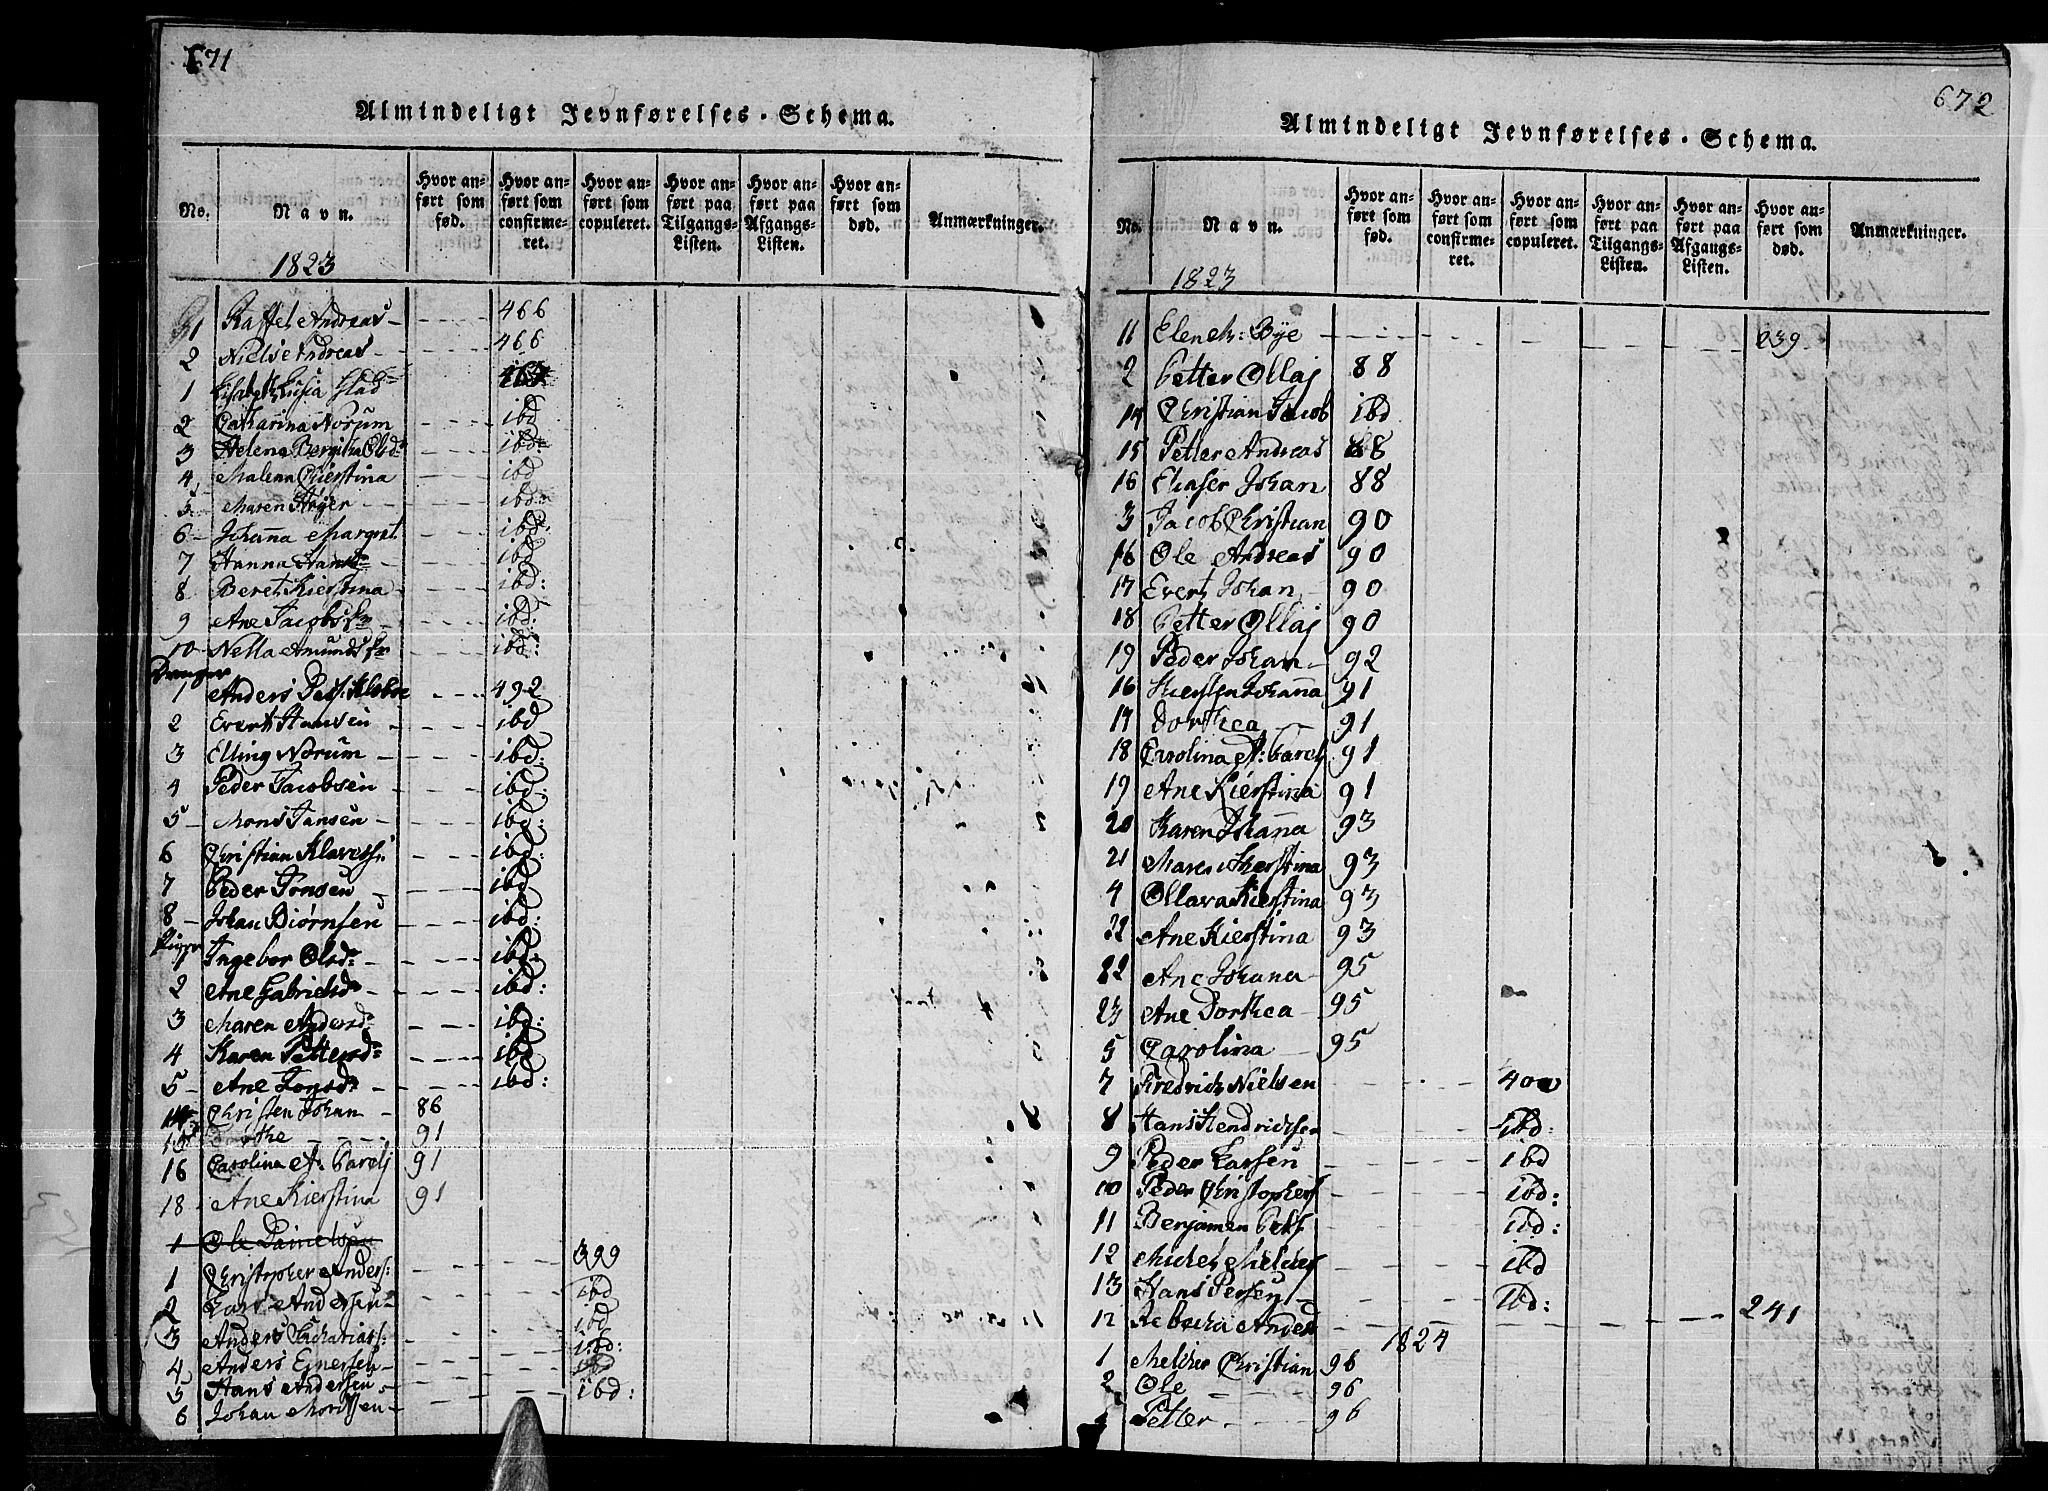 671
Almindeligt Jevnførelses-Schema.
No. Navn. Hvor anført som fød. Hvor anført som confirmeret. Hvor anført som copuleret. Hvor anført paa Tilgangs-Listen. Hvor anført paa Afgangs-Listen. Hvor anført som død. Anmærkninger.
1823
1 Andreas 466
2 Niels Andreas 466
1
2 Catharina Norum ibd
3 Helena Olsd: ibd:
4 Malena Kierstina ibd
5 Maren ibd:
6 Johanna Margret ibd:
7 Hanna ibd
8 Beret Kierstina ibd:
9 Ane ibd:
10 Nella ibd:
Drenger
1 Anders 492
2 Evert Hansen ibd
3 Elling Norum ibd:
4 Peder Jacobsen ibd:
5 Mons Jansen ibd:
6 Christian ibd:
7 Peder Jonsen ibd
8 Johan Biørnsen ibd:
Piger
1 Ingebor Olsd: ibd:
2 Ane Gabrielsd: ibd:
3 Maren Andersd: ibd:
4 Karen Pettersd: ibd
5 Ane Jonsd: ibd:
Christen Johan 86
91
16 Carolina A: 91
18 Ane Kierstina 91
1 Ole Danielsen
1 Christopher Anders: 399
2 Lars Andersen ibd
3 Anders Zachariass: ibd
4 Anders Ejnersen ibd:
5 Hans Andersen ibd
6 Johan ibd:
672
Almindeligt Jevnførelses-Schema.
No. Navn. Hvor anført som fød. Hvor anført som confirmeret. Hvor anført som copuleret. Hvor anført paa Tilgangs-Listen. Hvor anført paa Afgangs-Listen. Hvor anført som død. Anmærkninger.
1823
11 Bye 239
2 Petter Ollaj 88
14 Christian Jacob ibd
15 Petter Andreas 88
16 Eliaser Johan 88
3 Jacob Christian 90
16 Ole Andreas 90
17 Evert Johan 90
18 Petter Ollaj 90
19 Peder Johan 92
16 Kiersten Johanna 91
17 Dorthea 91
18 Carolina A: 91
19 Ane Kierstina 91
20 Karen Johanna 93
21 Maren Kierstina 93
4 Ollava Kierstina 93
22 Ane Kierstina 93
22 Ane Johana 95
23 Ane Dorthea 95
5 Carolina 95
7 Fredrich Nielsen 400
8 Hans Hendrichsen ibd:
9 Peder Larsen ibd
10 Peder Christophers ibd:
11 Benjamen ibd:
12 ibd
13 Hans Persen ibd:
12 Rebecka Andersd 241
1824
1 Melcher Christian 96
2 Ole 96
Petter 96